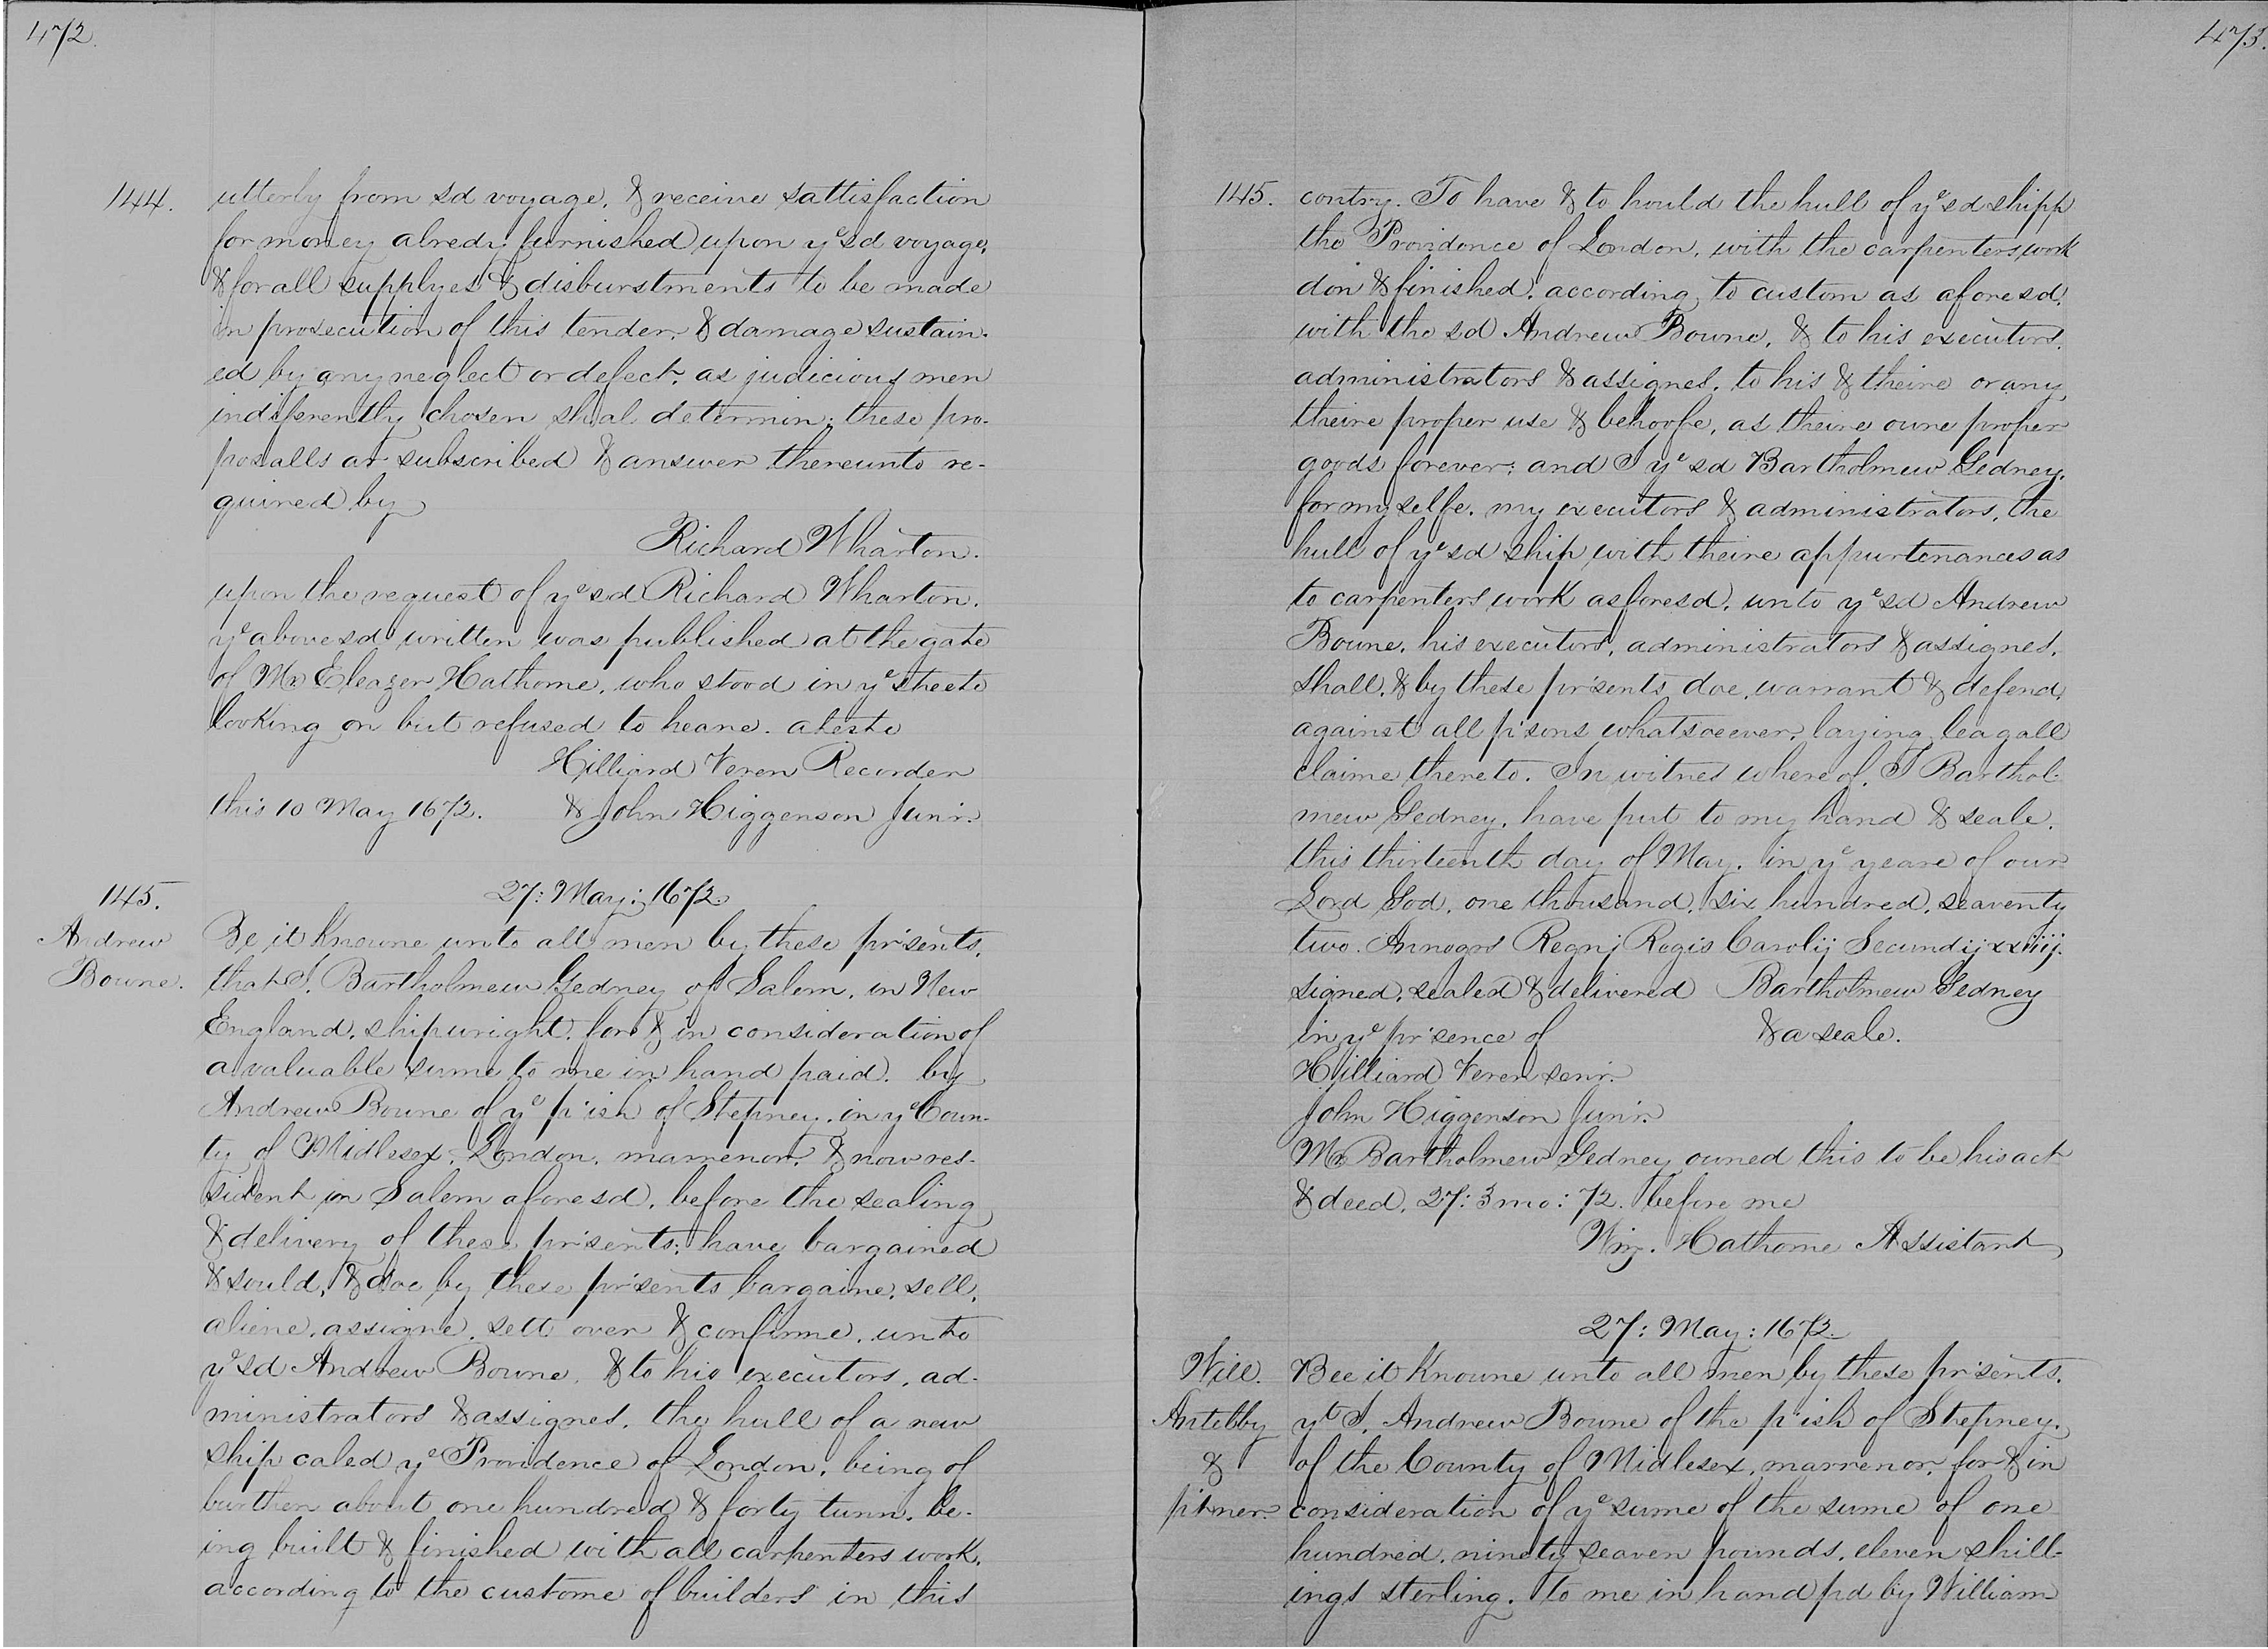 472.
144. utterly from sd voyage, & receive sattisfaction
for money alredy furnished upon yᵉ sd voyage,
& for all supplyes & disburstments to be made
in prosecution of this tender, & damage sustain-
ed by any neglect or defect, as judicious men
indiferently chosen shal determin; these pro-
posalls ar subscribed & answer thereunto re-
quired by
Richard Wharton.
upon the request of yᵉ sd Richard Wharton.
yᵉ above sd written was published at the gate
of Mr Eleazer Hathorne, who stood in yᵉ streete
looking on but refused to heare. ateste
Hilliard Veren Recorder
this 10 May 1672. & John Higgenson Junir.
145. 27: May: 1672.
Andrew Bowne.
Be it knowne unto all men by these pr'sents,
that I, Bartholmew Gedney of Salem, in New
England, shipwright, for & in consideration of
a valuable sume to me in hand paid, by
Andrew Bowne of yᵉ p'ish of Stepney, in yᵉ Coun-
ty of Midlesex, London, marrenor, & now res-
sident in Salem aforesd, before the sealing
& delivery of these pr'sents; have bargained
& sould, & doe by these pr'sents bargaine, sell,
aliene, assigne, sett over & confirme, unto
yᵉ sd Andrew Bowne, & to his executors, ad-
ministrators & assignes, the hull of a new
ship caled yᵉ Providence of London, being of
burthen about one hundred & forty tunn, be-
ing built & finished with all carpenters work,
according to the custome of builders in this
473.
145. contry. To have & to hould the hull of yᵉ sd shipp
the Providence of London, with the carpenters work
don & finished, according to custom as aforesd,
with the sd Andrew Bowne, & to his executors,
administrators & assignes, to his & theire or any
theire proper use & behoofe, as theire owne proper
goods forever; and I yᵉ sd Bartholmew Gedney,
for my selfe, my executors & administrators, the
hull of yᵉ sd ship with theire appurtenances as
to carpenters work asforesd, unto yᵉ sd Andrew
Bowne, his executors, administrators & assignes,
shall, & by these pr'sents doe, warrant & defend,
against all p'sons whatsoeever, laying leagall
claime thereto. In witnes whereof, I Barthol-
mew Gedney, have put to my hand & seale,
this thirteenth day of May, in yᵉ yeare of our
Lord God, one thousand, six hundred, seaventy
two. Annoqro Regnj Regis Carolij Secundij xxiiij.
signed, sealed & delivered Bartholmew Gedney
in yᵉ pr'sence of & a seale.
Hilliard Veren senir.
John Higgenson Junir.
Mr Bartholmew Gedney owned this to be his act
& deed, 27: 3 mo: 72. before me
Wm. Hathorne Assistant
27: May: 1672.
Will. Antebby & p'tner.
Bee it knowne unto all men by these pr'sents,
yᵗ I, Andrew Bowne of the p'ish of Stepney,
of the County of Midlesex, marrenor, for & in
consideration of yᵉ sume of the sume of one
hundred, ninety seaven pounds, eleven shill-
ings sterling, to me in hand pd by William